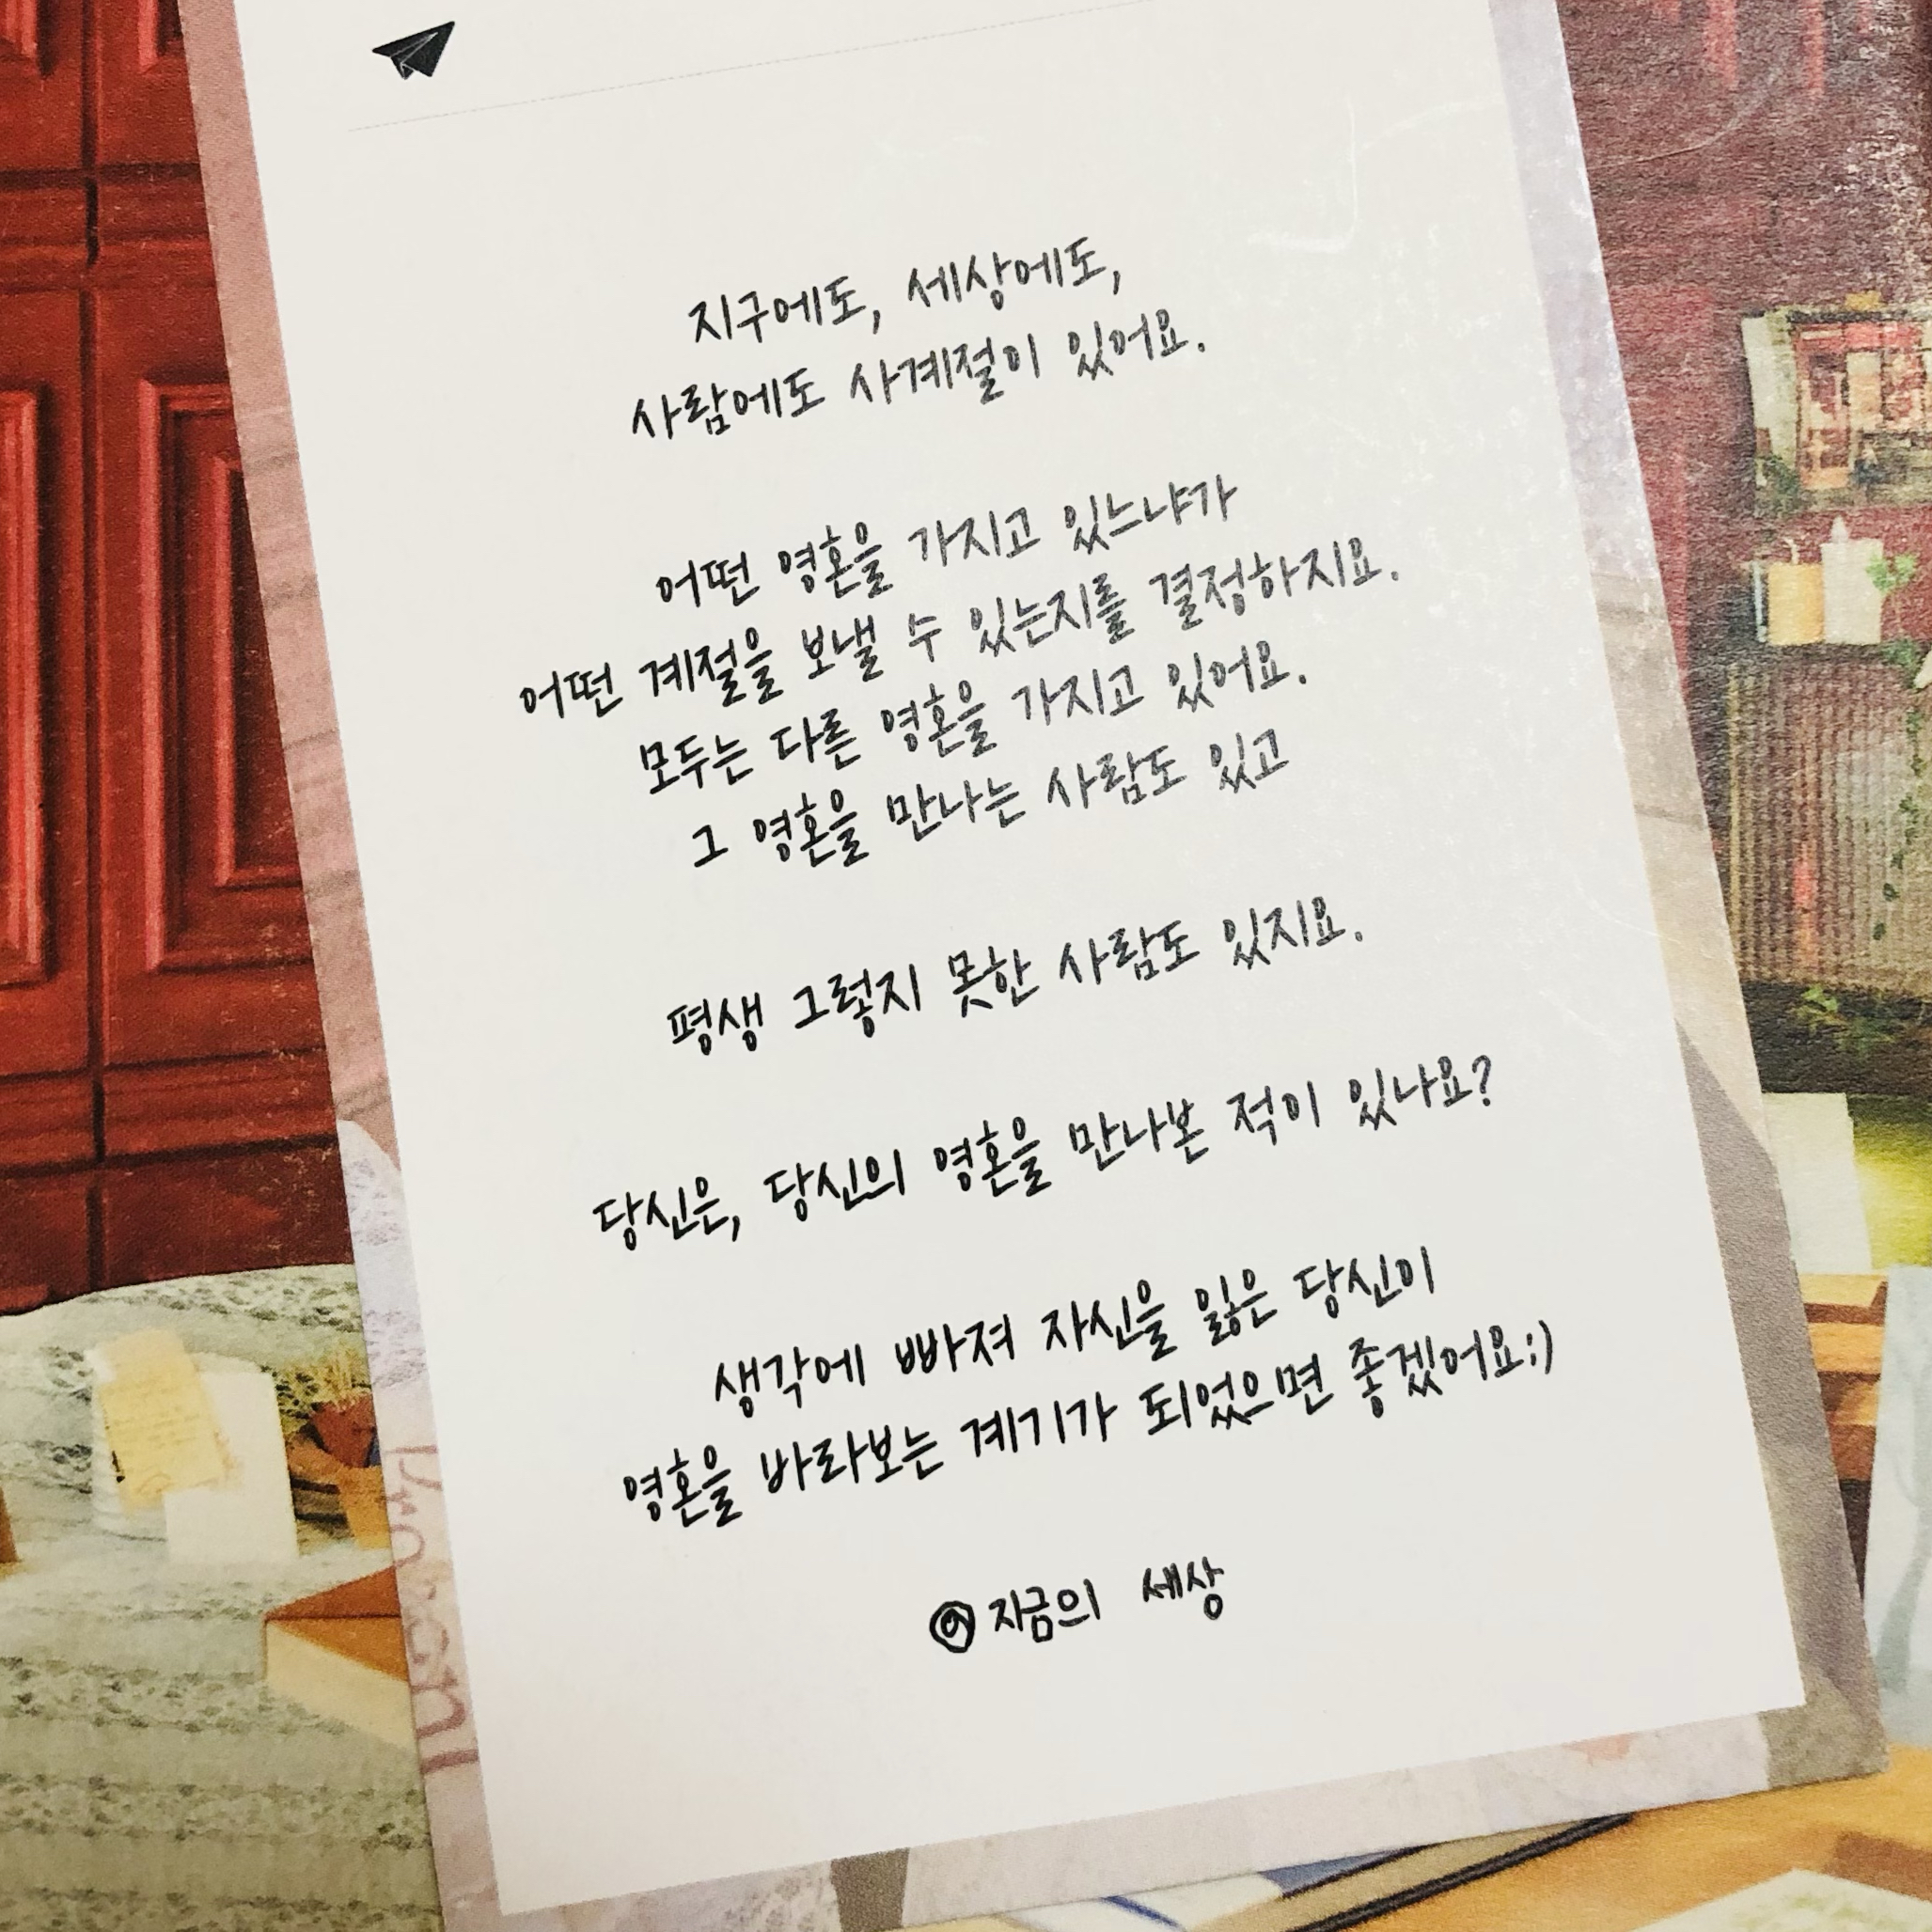 지구에도, 세상에도,
사람에도 사계절이 있어요.
어떤 영혼을 가지고 있느냐가
어떤 계절을 보낼 수 있는지를 결정하지요.
모두는 다른 영혼을 가지고 있어요.
그 영혼을 만나는 사람도 있고
평생 그렇지 못한 사람도 있지요.
당신은, 당신의 영혼을 만나본 적이 있나요?
생각에 빠져 자신을 잃은 당신이
영혼을 바라보는 계기가 되었으면 좋겠어요:)
지금의 세상